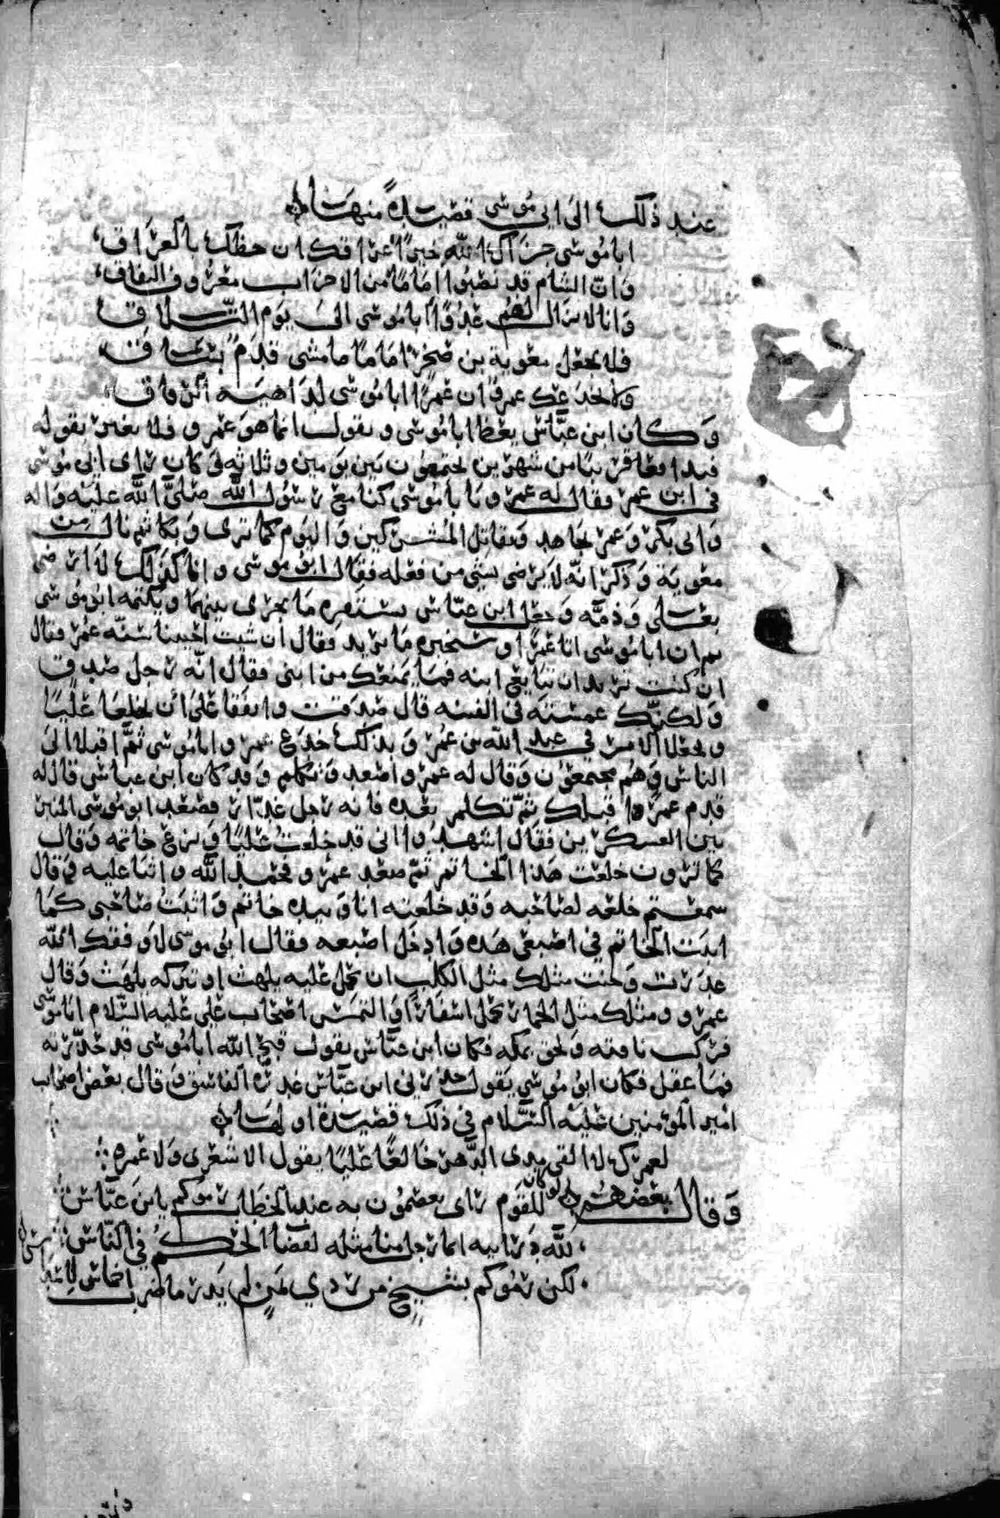 عند ذلك الى ابي موسى قصيدة منها
ابا موسى جزاك الله خيرا عراقك ان حظك بالعراق
وان الشام قد نصبوا اماما من الاحزاب معروف النفاق
وانا لا نزال لهم عدوا ابا موسى الى يوم التلاق
فلا تجعل معوية بن صخر اماما ما مشى قدم بساق
ولا يخدعك عمرو ان عمرا ابا موسى لداهية الرواق
وكان ابن عباس يعظ ابا موسى ويقول انما هو عمرو فلا يغرنك بقوله
فتدافعا قريبا من شهرين يجتمعون بين يومين وثلاثة وكان راى ابي موسى
في ابن عمر فقال له عمرو يا با موسى كنا مع رسول الله صلى الله عليه واله
وابي بكر وعمر نجاهد ونقاتل المشركين واليوم كما ترى وبكا ثم نال من
معوية وذكر انه لا يرضى بشي من فعله فقال ابو موسى وانا كذلك لا ارضى
بفعل علي وذمه وجعل ابن عباس يستخبره ما يجري بينهما ويكتمه ابو موسى
ثم ان ابا موسى اتا عمرا واستخبره ما يريد فقال ان شيت احيينا سنة عمر فقال
ان كنت تريد ان تبايع ابنه فما يمنعك من ابني فقال انه رجل صدق
ولكنك غمسته في الفتنه قال صدقت واتفقا على ان يخلعا عليا
ويجعلا الامر في عبد الله بن عمر وبذلك خدع عمرو ابا موسى ثم اقبلا الى
الناس وهم مجتمعون وقال له عمرو اصعد وتكلم وقد كان ابن عباس قال له
قدم عمرا قبلك ثم تكلم بعده فانه رجل غدار فصعد ابو موسى المنبر
بين العسكرين فقال اشهدوا اني قد خلعت عليا ونزع خاتمه وقال
كما ترون خلعت هذا الخاتم ثم صعد عمرو فحمد الله واثنا عليه ثم قال
سمعتم خلعه لصاحبه وقد خلعته انا وبيده خاتم واثبت صاحبي كما
اثبت الخاتم في اصبعي هذه وادخل اصبعه فقال ابو موسى لا وفقك الله
غدرت وخنت مثلك مثل الكلب ان تحمل عليه يلهث او تتركه يلهث وقال
عمرو ومثلك مثل الحمار يحمل اسفارا والتمس اصحاب علي عليه السلام ابا موسى
فركب ناقته ولحق بمكه فكان ابن عباس يقول قبح الله ابا موسى قد حذرته
فما عقل فكان ابو موسى يقول حذرني ابن عباس غدرة الفاسق وقال بعض اصحاب
امير المؤمنين عليه السلام في ذلك قصيدة اولها
لعمرك لا القى مدى الدهر خالعا عليا بقول الاشعري ولا عمرو
وقال بعضهم لو كان للقوم راى يعصمون به عند الخطاب رموكم بابن عباس
لله در ابيه ايما رجل ما مثله لقضا الحكم في الناس
لكن رموكم بشيخ من ذوي يمن لم يدر ما ضرب اخماس لاسداس